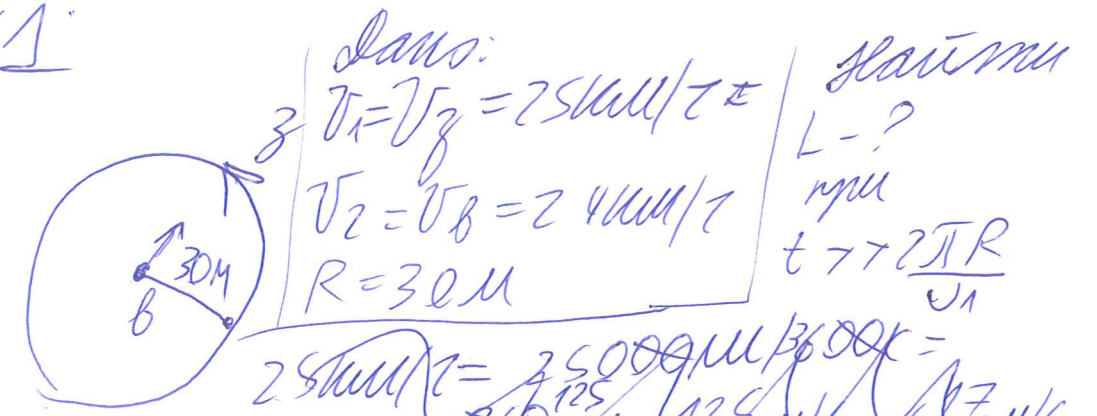 1.
Дано:
V₁=V_з=25км/г =
V₂=V_в=24км/г
R=30м
Найти
L-?
при
t>>2πR/V₁
з
30м
в
25км/г= 25000м/3600с=